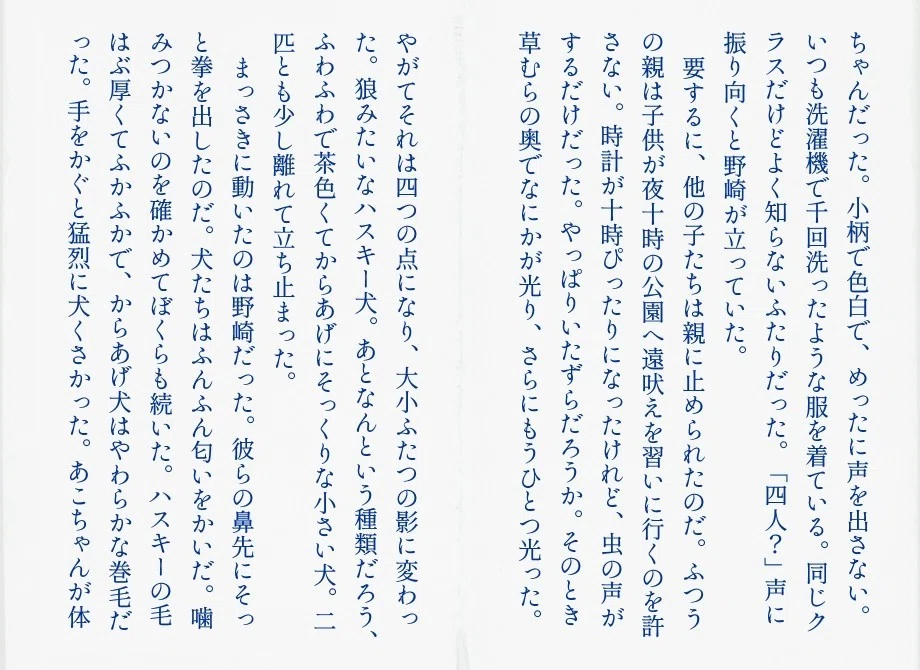 ちゃんだった。小柄で色白で、めったに声を出さない。
いつも洗濯機で千回洗ったような服を着ている。同じク
ラスだけどよく知らないふたりだった。「四人？」声に
振り向くと野崎が立っていた。
要するに、他の子たちは親に止められたのだ。ふつう
の親は子供が夜十時の公園へ遠吠えを習いに行くのを許
さない。時計が十時ぴったりになったけれど、虫の声が
するだけだった。やっぱりいたずらだろうか。そのとき
草むらの奥でなにかが光り、さらにもうひとつ光った。
やがてそれは四つの点になり、大小ふたつの影に変わっ
た。狼みたいなハスキー犬。あとなんという種類だろう、
ふわふわで茶色くてからあげにそっくりな小さい犬。二
匹とも少し離れて立ち止まった。
まっさきに動いたのは野崎だった。彼らの鼻先にそっ
と拳を出したのだ。犬たちはふんふん匂いをかいだ。噛
みつかないのを確かめてぼくらも続いた。ハスキーの毛
はぶ厚くてふかふかで、からあげ犬はやわらかな巻毛だ
った。手をかぐと猛烈に犬くさかった。あこちゃんが体